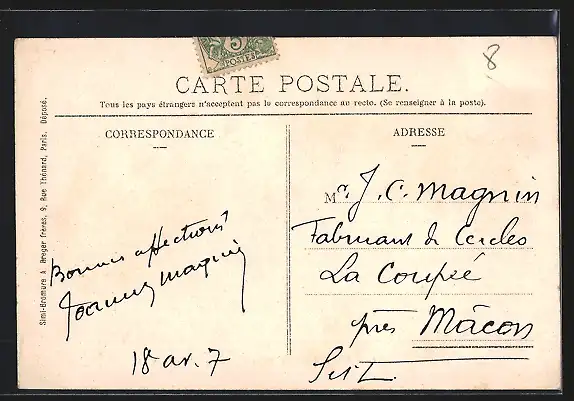 8
5
POSTES
CARTE POSTALE.
Tous les pays étrangers n'acceptent pas la correspondance au recto. (Se renseigner à la poste).
CORRESPONDANCE
Bonnes affections
Joanny Magnin
18 av. 7
ADRESSE
Mr. J. C. Magnin
Fabricant de Cercles
La Coupée
près Mâcon
S et L.
Simi-Bromure A. Breger frères, 9, Rue Thénard, Paris. Déposé.